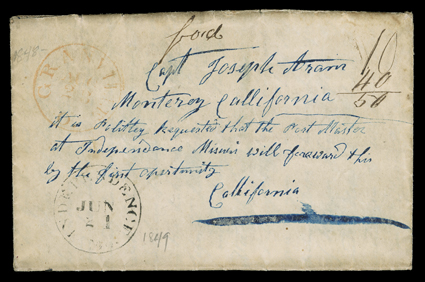 Capt Joseph Aram
Monteroy Callifornia
10
40
50
it is Politley requested that the Post Master
at Independance Missuri will foreward this
by the first opertunity
Callifornia
INDEPENDENCE
JUN
21
1849